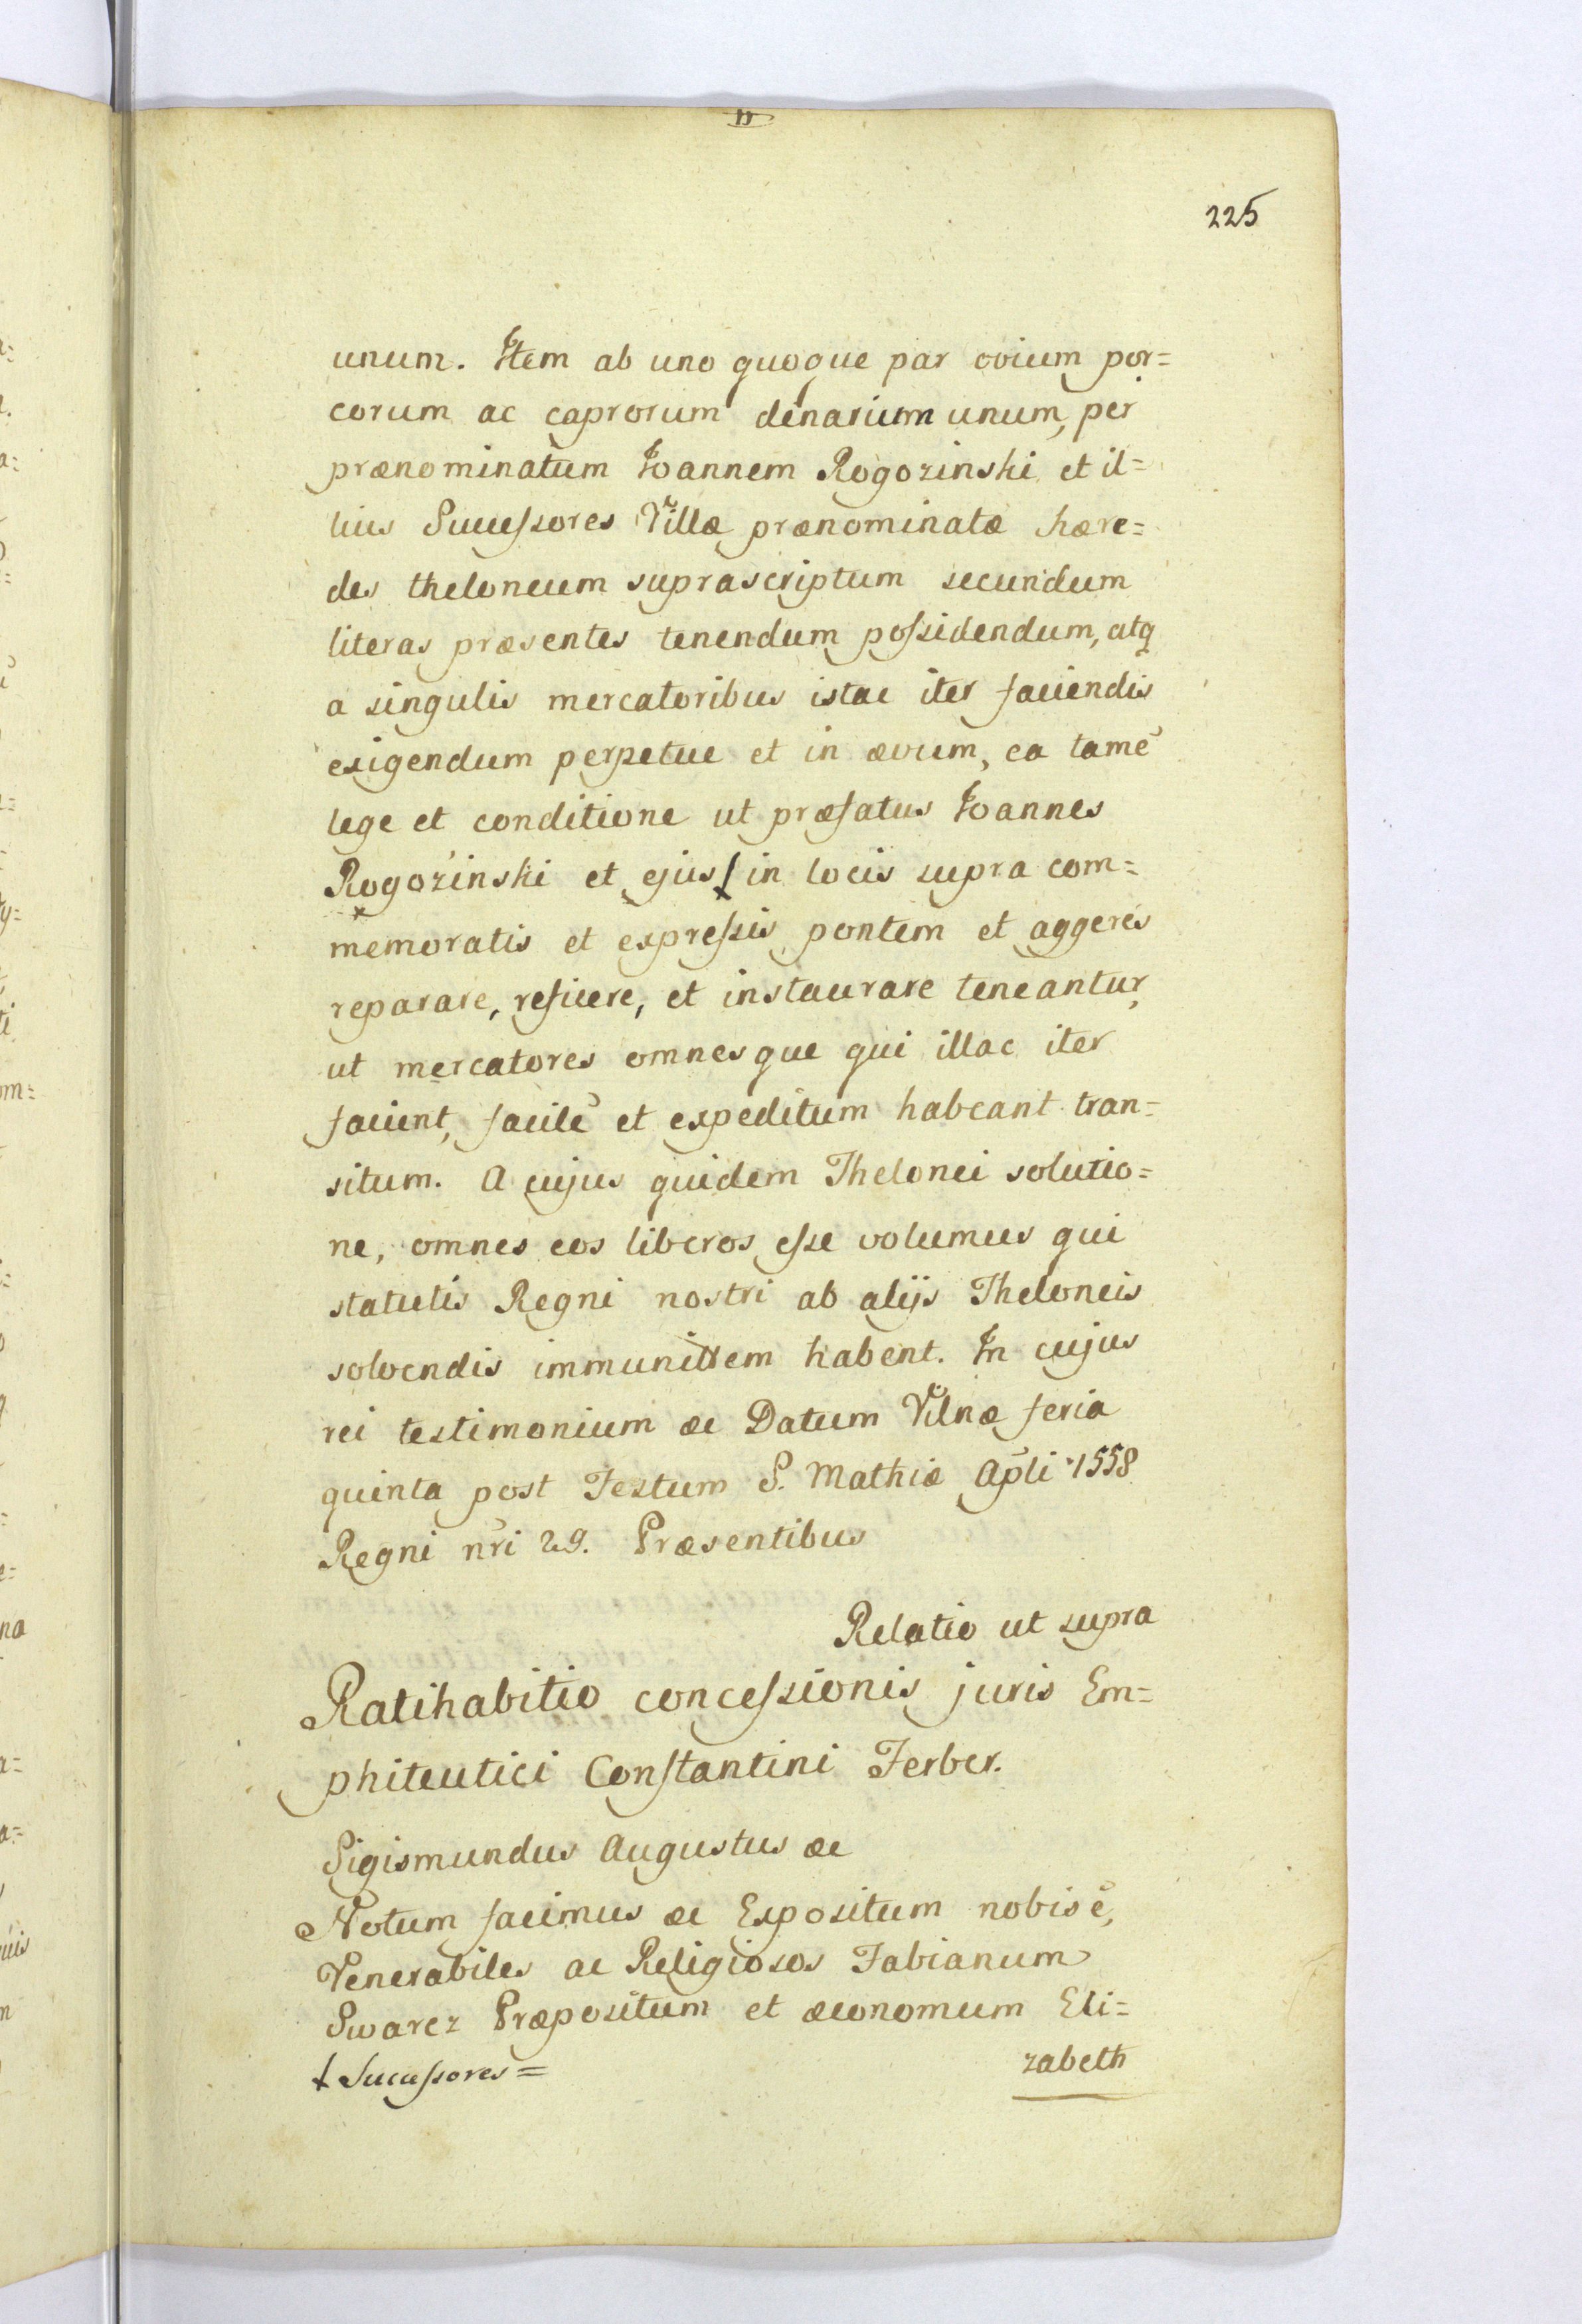 225
unum. Item ab uno quoque par ovium por=
corum ac caprorum denarium unum, per
prænominatum Ioannem Rogozinski et il=
lius Successores Villæ prænominatæ hære=
des theloneum suprascriptum secundum
literas præsentes tenendum possidendum, atq
a singulis mercatoribus istac iter faciendis
exigendum perpetue et in ævum, ea tamē
lege et conditione ut præfatus Ioannes
Rogoźinski et ejus ⸸ in locis supra com=
memoratis et expressis pontem et aggeres
reparare, reficere, et instaurare teneantur,
ut mercatores omnesque qui illac iter
facient, facilē et expeditum habeant tran=
situm. A cujus quidem Thelonei solutio=
ne, omnes eos liberos esse volumus qui
statutis Regni nostri ab alijs Theloneis
solvendis immunittem habent. In cujus
rei testimonium &c Datum Vilnæ feria
quinta post Festum S. Mathiæ Apli 1558
Regni nri 29. Præsentibus
Relatio ut supra
Ratihabitio concessionis juris Em=
phiteutici Constantini Ferber.
Sigismundus Augustus &c
Notum facimus &c Expositum nobis ē,
Venerabiles ac Religiosos Fabianum
Swarez Præpositum et œconomum Eli=
⸸ Successores=
zabeth